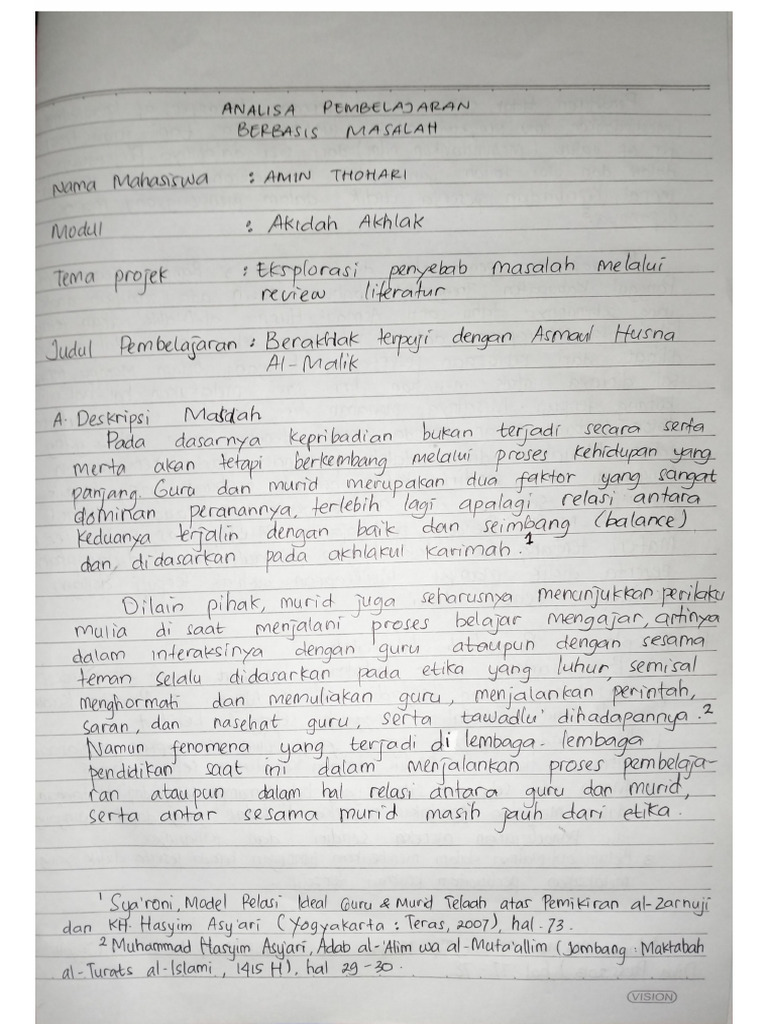 ANALISA PEMBELAJARAN
BERBASIS MASALAH
Nama Mahasiswa : AMIN THOHARI
Modul : Akidah Akhlak
Tema projek : Eksplorasi penyebab masalah melalui
review literatur
Judul Pembelajaran : Berakhlak terpuji dengan Asmaul Husna
Al-Malik
A. Deskripsi Masalah
Pada dasarnya kepribadian bukan terjadi secara serta
merta akan tetapi berkembang melalui proses kehidupan yang
panjang. Guru dan murid merupakan dua faktor yang sangat
dominan peranannya, terlebih lagi apalagi relasi antara
keduanya terjalin dengan baik dan seimbang (balance)
dan, didasarkan pada akhlakul karimah.¹
Dilain pihak, murid juga seharusnya menunjukkan perilaku
mulia di saat menjalani proses belajar mengajar, artinya
dalam interaksinya dengan guru ataupun dengan sesama
teman selalu didasarkan pada etika yang luhur, semisal
menghormati dan memuliakan guru, menjalankan perintah,
saran, dan nasehat guru, serta tawadlu' dihadapannya.²
Namun fenomena yang terjadi di lembaga-lembaga
pendidikan saat ini dalam menjalankan proses pembelaja-
ran ataupun dalam hal relasi antara guru dan murid,
serta antar sesama murid masih jauh dari etika.
¹ Sya'roni, Model Relasi Ideal Guru & Murid Telaah atas Pemikiran al-Zarnuji
dan KH. Hasyim Asy'ari (Yogyakarta : Teras, 2007), hal. 73.
² Muhammad Hasyim Asy'ari, Adab al-'Alim wa al-Muta'allim (Jombang : Maktabah
al-Turats al-Islami, 1415 H), hal 29-30.
VISION